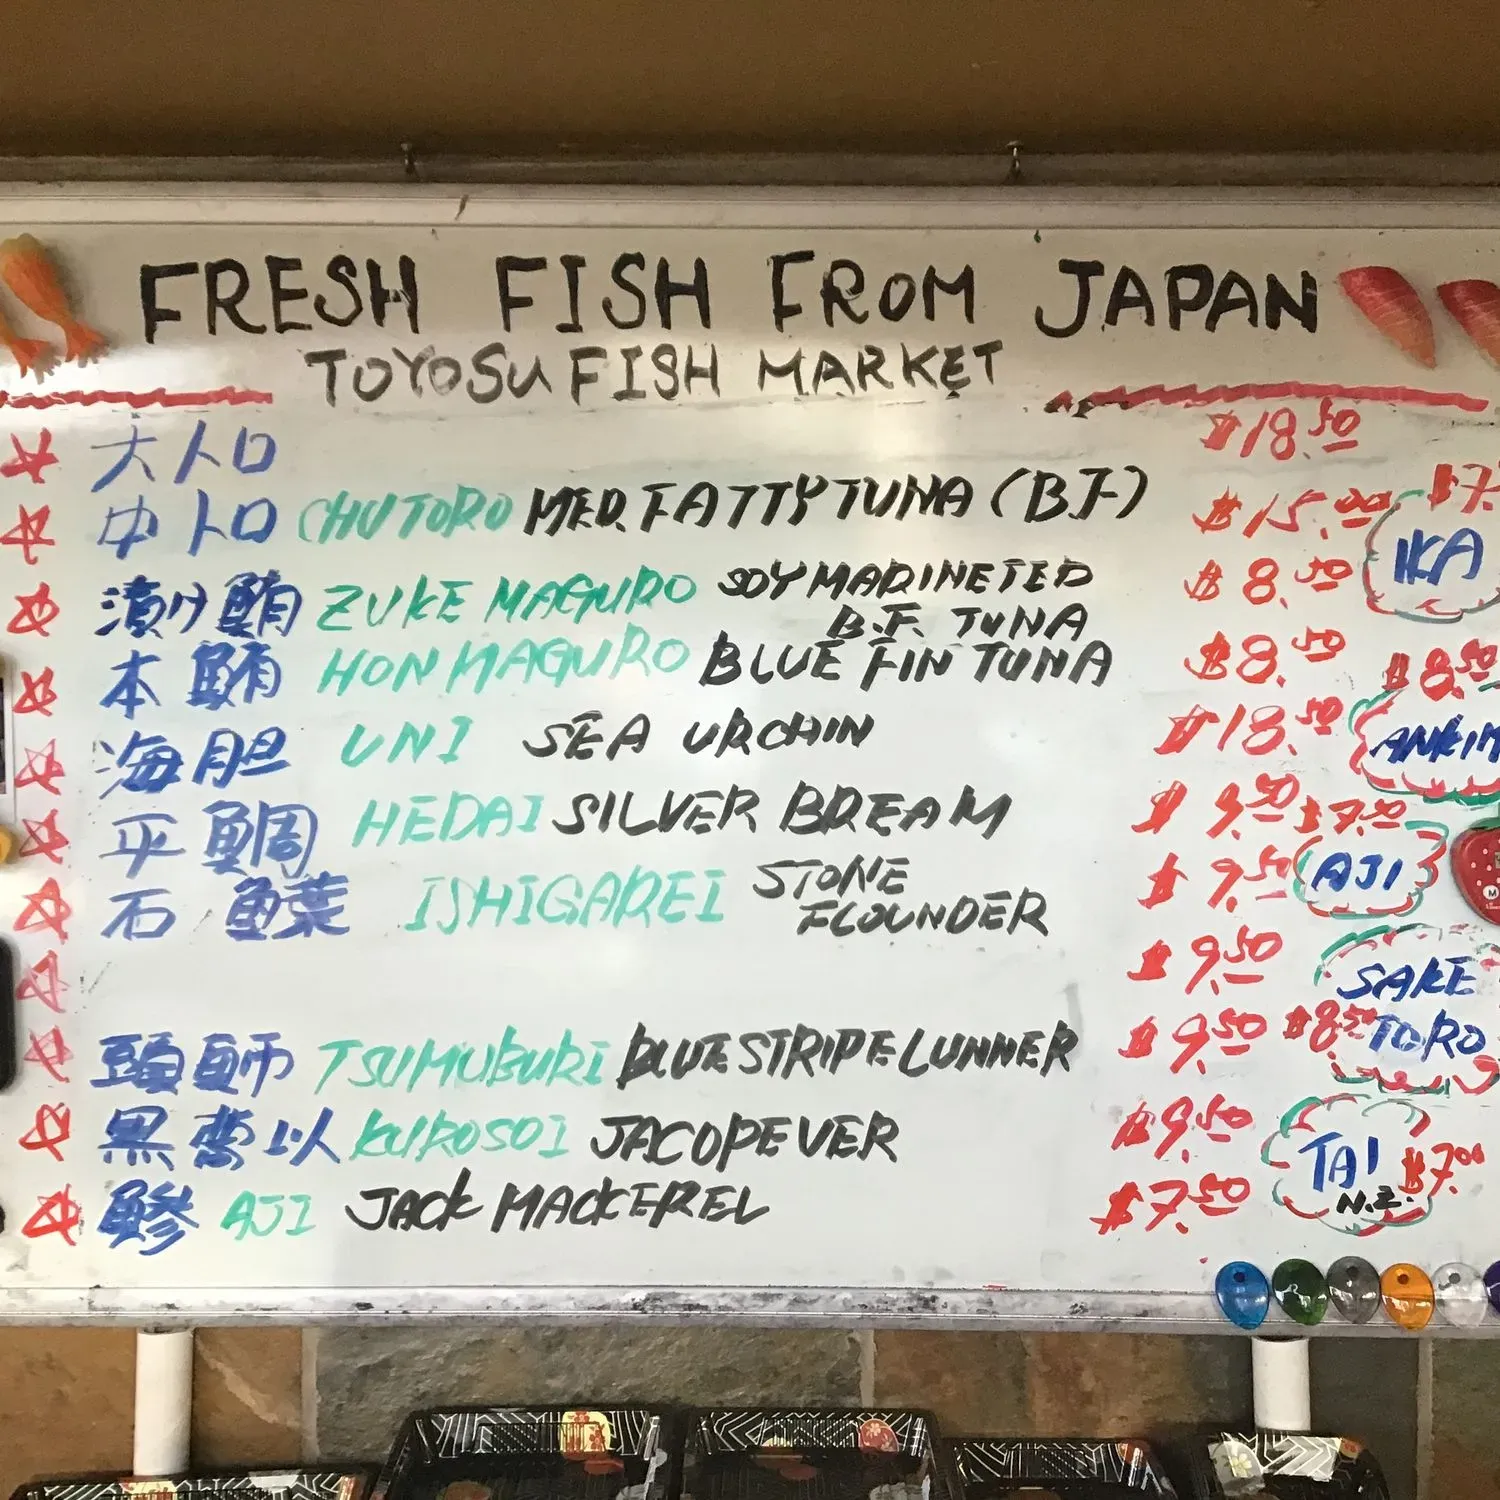 FRESH FISH FROM JAPAN
TOYOSU FISH MARKET
大トロ $18.50
中トロ CHUTORO MED. FATTY TUNA (B.F) $15.00
漬け鮪 ZUKE MAGURO SOY MARINETED B.F. TUNA $8.50
本鮪 HON MAGURO BLUE FIN TUNA $8.50
海胆 UNI SEA URCHIN $18.50
平鯛 HEDAI SILVER BREAM $9.50
石鰈 ISHIGAREI STONE FLOUNDER $9.50
$9.50
頭鰤 TSUMUBURI BLUE STRIPE LUNNER $9.50
黒曹以 KUROSOI JACOPEVER $9.50
鯵 AJI JACK MACKEREL $7.50
IKA
$8.50
$7.50
AJI
SAKE
$8.50 TORO
TAI $7.00
N.Z.